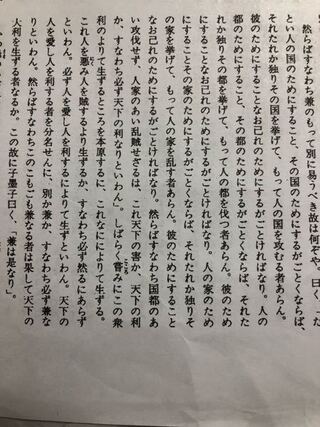 然らばすなわち兼のもって別に易うべき故は何ぞや。曰く、
とい人の国のためにすること、その国のためにするがごとくならば、
それたれか独りその国を挙げて、もって人の国を攻むる者あらん。
彼のためにすることなお己れのためにするがごとければなり。人の
都のためにすること、その都のためにするがごとくならば、それた
れか独りその都を挙げて、もって人の都を伐つ者あらん。彼のため
にすることなお己れのためにするがごとければなり。人の家のため
にすることその家のためにするがごとくならば、それたれか独りそ
の家を挙げて、もって人の家を乱す者あらん。彼のためにすること
なお己れのためにするがごとければなり。然らばすなわち国都のあ
い攻伐せず、人家のあい乱賊せざるは、これ天下の害か、天下の利
か、すなわち必ず天下の利なりといわん。しばらく嘗みにこの衆
利のよりて生ずるところを本原するに、これなにによりて生ずるか、
これ人を悪み人を賊するより生ずるか、すなわち必ず然るにあらず
といわん。必ず人を愛し人を利するによりて生ずといわん。天下の
人を愛し人を利する者を分名せんに、別か兼か、すなわち必ず兼な
りといわん。然らばすなわちこのこもごも兼なる者は果して天下の
大利を生ずる者なるか。この故に子墨子曰く、兼は是なり」。